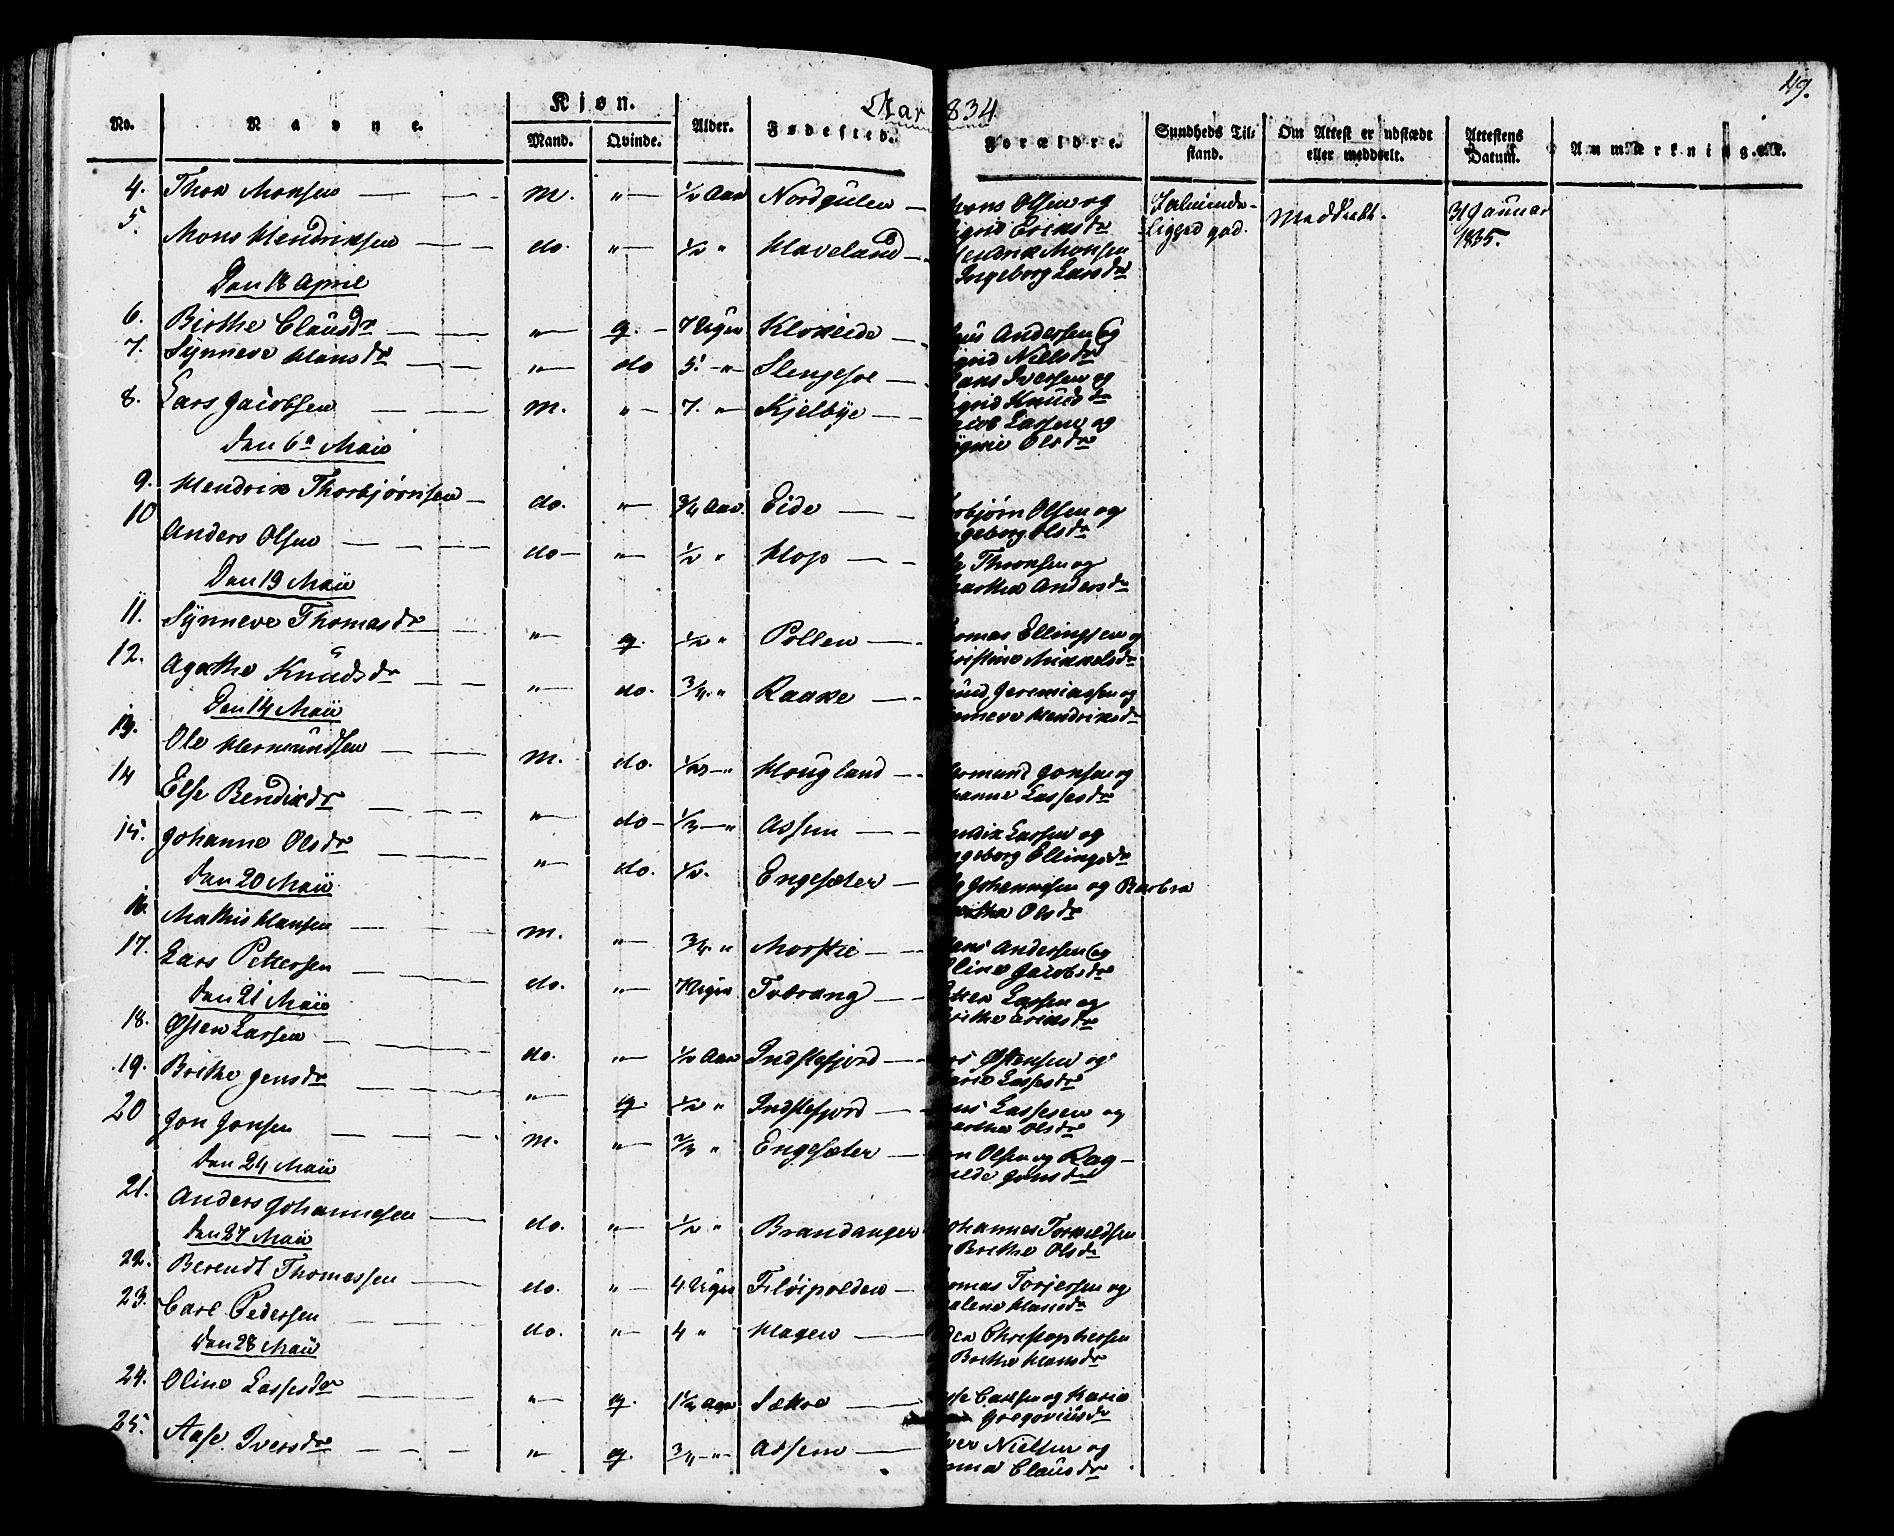 Aar 1834
49.
No. Navne. Kjøn. Alder. Fødested. Forældre. Sundheds Til- Om Attest er udstædt Attestens Anmærkninger.
Mand. Qvinde. stand. eller meddeelt. Datum.
4. Thor Monsen — m. " ½ Aar Nordgulen — Mons Olsen og
Sigrid Eriksdr
Meddeelt. 31 Januar
1835.
5. Mons Hendriksen — do. " ½ " Haveland — Hendrik Monsen
Ingeborg Larsdr
Den 18 April
6. Birthe Clausdr — " q. 7 Uger Kloxeide — Andersen og
Sigrid Nielsdr
7. Synneve Hansdr — " do 5 " Slengesoe — Hans Iversen og
Sigrid Knudsdr
8. Lars Jacobsen — m. " 7. " Kjelbye — Jacob Lassen og
Olsdr
Den 6e Maii
9. Hendrik Thorbjørnsen — do. " ¾ Aar. Eide — Thorbjørn Olsen og
Ingeborg Olsdr
10 Anders Olsen — do — " ½ " Hop — Thronsen og
Marthe Andersdr
Den 19 Maii
11. Synneve Thomasdr — " q. ½ " Pollen — Thomas Ellingsen og
Christine Mikkelsdr
12. Agathe Knudsdr — " do. ¾ " Raaxe — Knud Jeremiassen og
Synneve Hendriksdr
Den 14 Maii
13. Ole Hermundsen — m. do. " Hougland — Hermund Jonsen og
Johanne Lassesdr
14 Else Bendixdr — " do — ⅓ — " Assem — Bendix Lassen og
Ingeborg Ellingsdr
15. Johanne Olsdr — " do. ½. Engesæter — Johannesen og Barbra
Marthe Olsdr
Den 20 Maii
16. Mathis Hansen — m. " ¾ " Morskie — Hans Andersen og
Oline Jacobsdr
17. Lars Pettersen — do. " 7 Uger Tverang — Petter Lassen og
Brithe Eriksdr
Den 21 Maii
18. Østen Larsen — do. " ½ Aar Indstefjord — Lars Østensen og
Marie Lassesdr
19. Brithe Jensdr — " q. ½ " Indstefjord — Jens Lassesen og
Marthe Olsdr
20 Jon Jonsen — m. " ⅔ " Engesæter — Jon Olsen og Rag-
nilde Jonsdr
Den 24 Maii
21. Anders Johannesen — do. " ½ " Brandanger Johannes Torkildsen
Brithe Olsdr
Den 27 Maii
22. Berendt Thomassen — do. " 4 Uger Fløipolden — Thomas Torjersen og
Malene Hansdr
23. Carl Pedersen — do. " 4 " Hagen — Peder Christophersen
Brithe Hansdr
Den 28 Maii
24. Oline Lassesdr — " q. 1½ Aar Sækre — Lasse Carlsen og Karia
Gregoriusdr
25. Aase Iversdr — " q. ¾ — " — Assem — Iver Nielsen og
Anna Clausdr